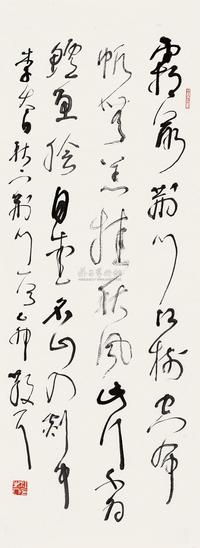 霜落荆门江树空布
帆无恙挂秋风此行不为
鲈鱼脍自爱名山入剡中
李太白秋下荆门